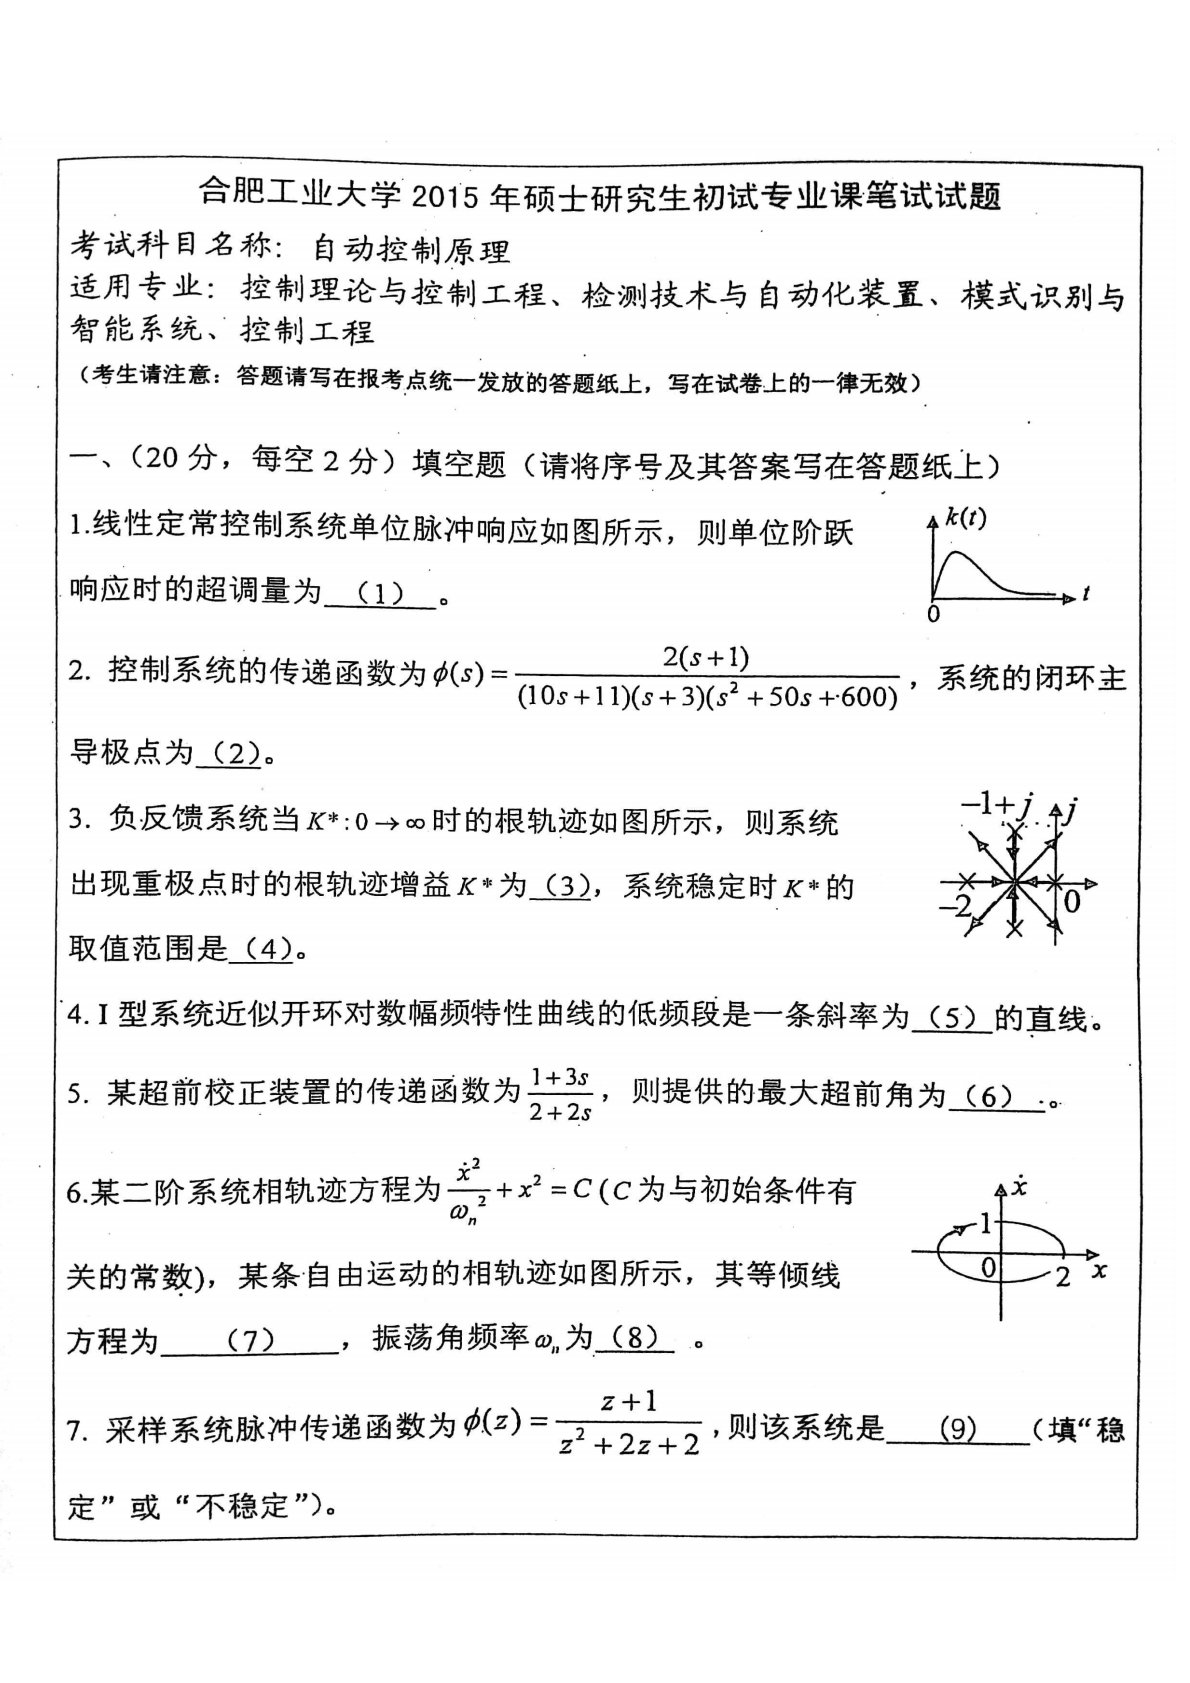 合肥工业大学 2015 年硕士研究生初试专业课笔试试题
考试科目名称：自动控制原理
适用专业：控制理论与控制工程、检测技术与自动化装置、模式识别与
智能系统、控制工程
（考生请注意：答题请写在报考点统一发放的答题纸上，写在试卷上的一律无效）
一、（20 分，每空 2 分）填空题（请将序号及其答案写在答题纸上）
1.线性定常控制系统单位脉冲响应如图所示，则单位阶跃
响应时的超调量为 （1） 。
k(t)
t
0
2. 控制系统的传递函数为 ϕ(s) = 2(s+1) / (10s+11)(s+3)(s²+50s+600) ，系统的闭环主
导极点为（2）。
3. 负反馈系统当 K*:0→∞ 时的根轨迹如图所示，则系统
出现重极点时的根轨迹增益 K* 为（3），系统稳定时 K* 的
取值范围是（4）。
−1+j
j
−2
0
4. I 型系统近似开环对数幅频特性曲线的低频段是一条斜率为（5）的直线。
5. 某超前校正装置的传递函数为 (1+3s)/(2+2s) ，则提供的最大超前角为（6） 。
6.某二阶系统相轨迹方程为 ẋ²/ωn² + x² = C (C 为与初始条件有
关的常数)，某条自由运动的相轨迹如图所示，其等倾线
方程为 （7） ，振荡角频率 ωn 为（8） 。
ẋ
1
0
2
x
7. 采样系统脉冲传递函数为 ϕ(z) = (z+1)/(z²+2z+2) ,则该系统是 (9) （填“稳
定”或“不稳定”）。